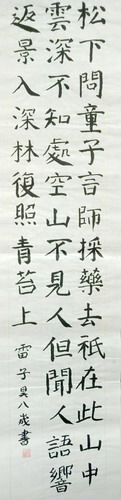 松下問童子言師採藥去祇在此山中
雲深不知處空山不見人但聞人語響
返景入深林復照青苔上
雷子昊八歲書